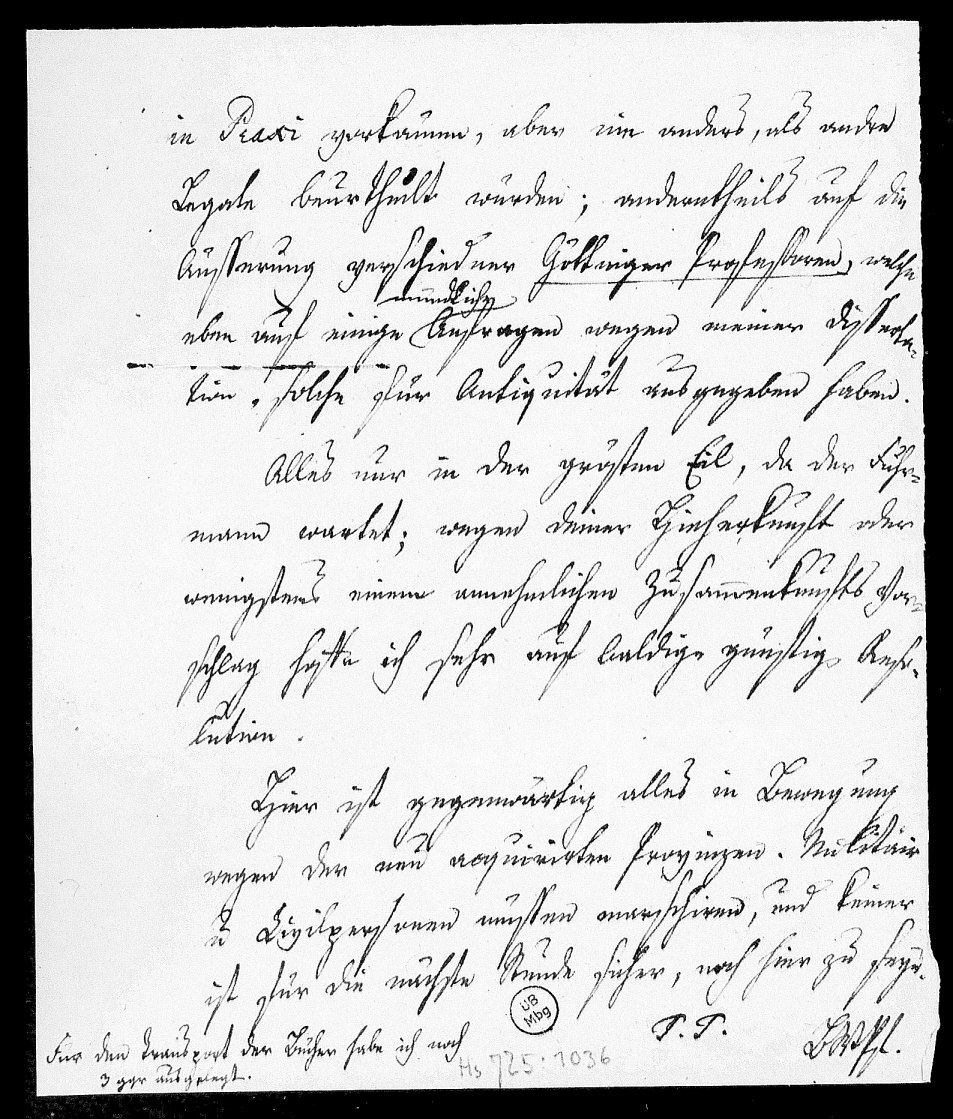 in Praxi vorkämen, aber nie anders, als andre
Legate beurtheilt würden; anderntheils auf die
Äusserung verschiedner Göttinger Professoren, welche
mündliche
eben auf einige Anfragen wegen meiner Disserta-
tion, solche für Antiquität ausgegeben haben.
Alles nur in der grösten Eil, da der Fuhr-
mann wartet; wegen deiner Hieherkunft oder
wenigstens einem annehmlichen Zusam̅enkunfts Vor-
schlag hoffe ich sehr auf baldige günstige Reso-
lution.
Hier ist gegenwärtig alles in Bewegung
wegen der neu acquirirten Provinzen. Militair
u Civilpersonen müssen marschiren, und keiner
ist für die nächste Stunde sicher, noch hier zu seyn.
P. P.
Für den Transport der Bücher habe ich noch
3 ggr ausgelegt.
UB
Mbg
Hs 725:1036